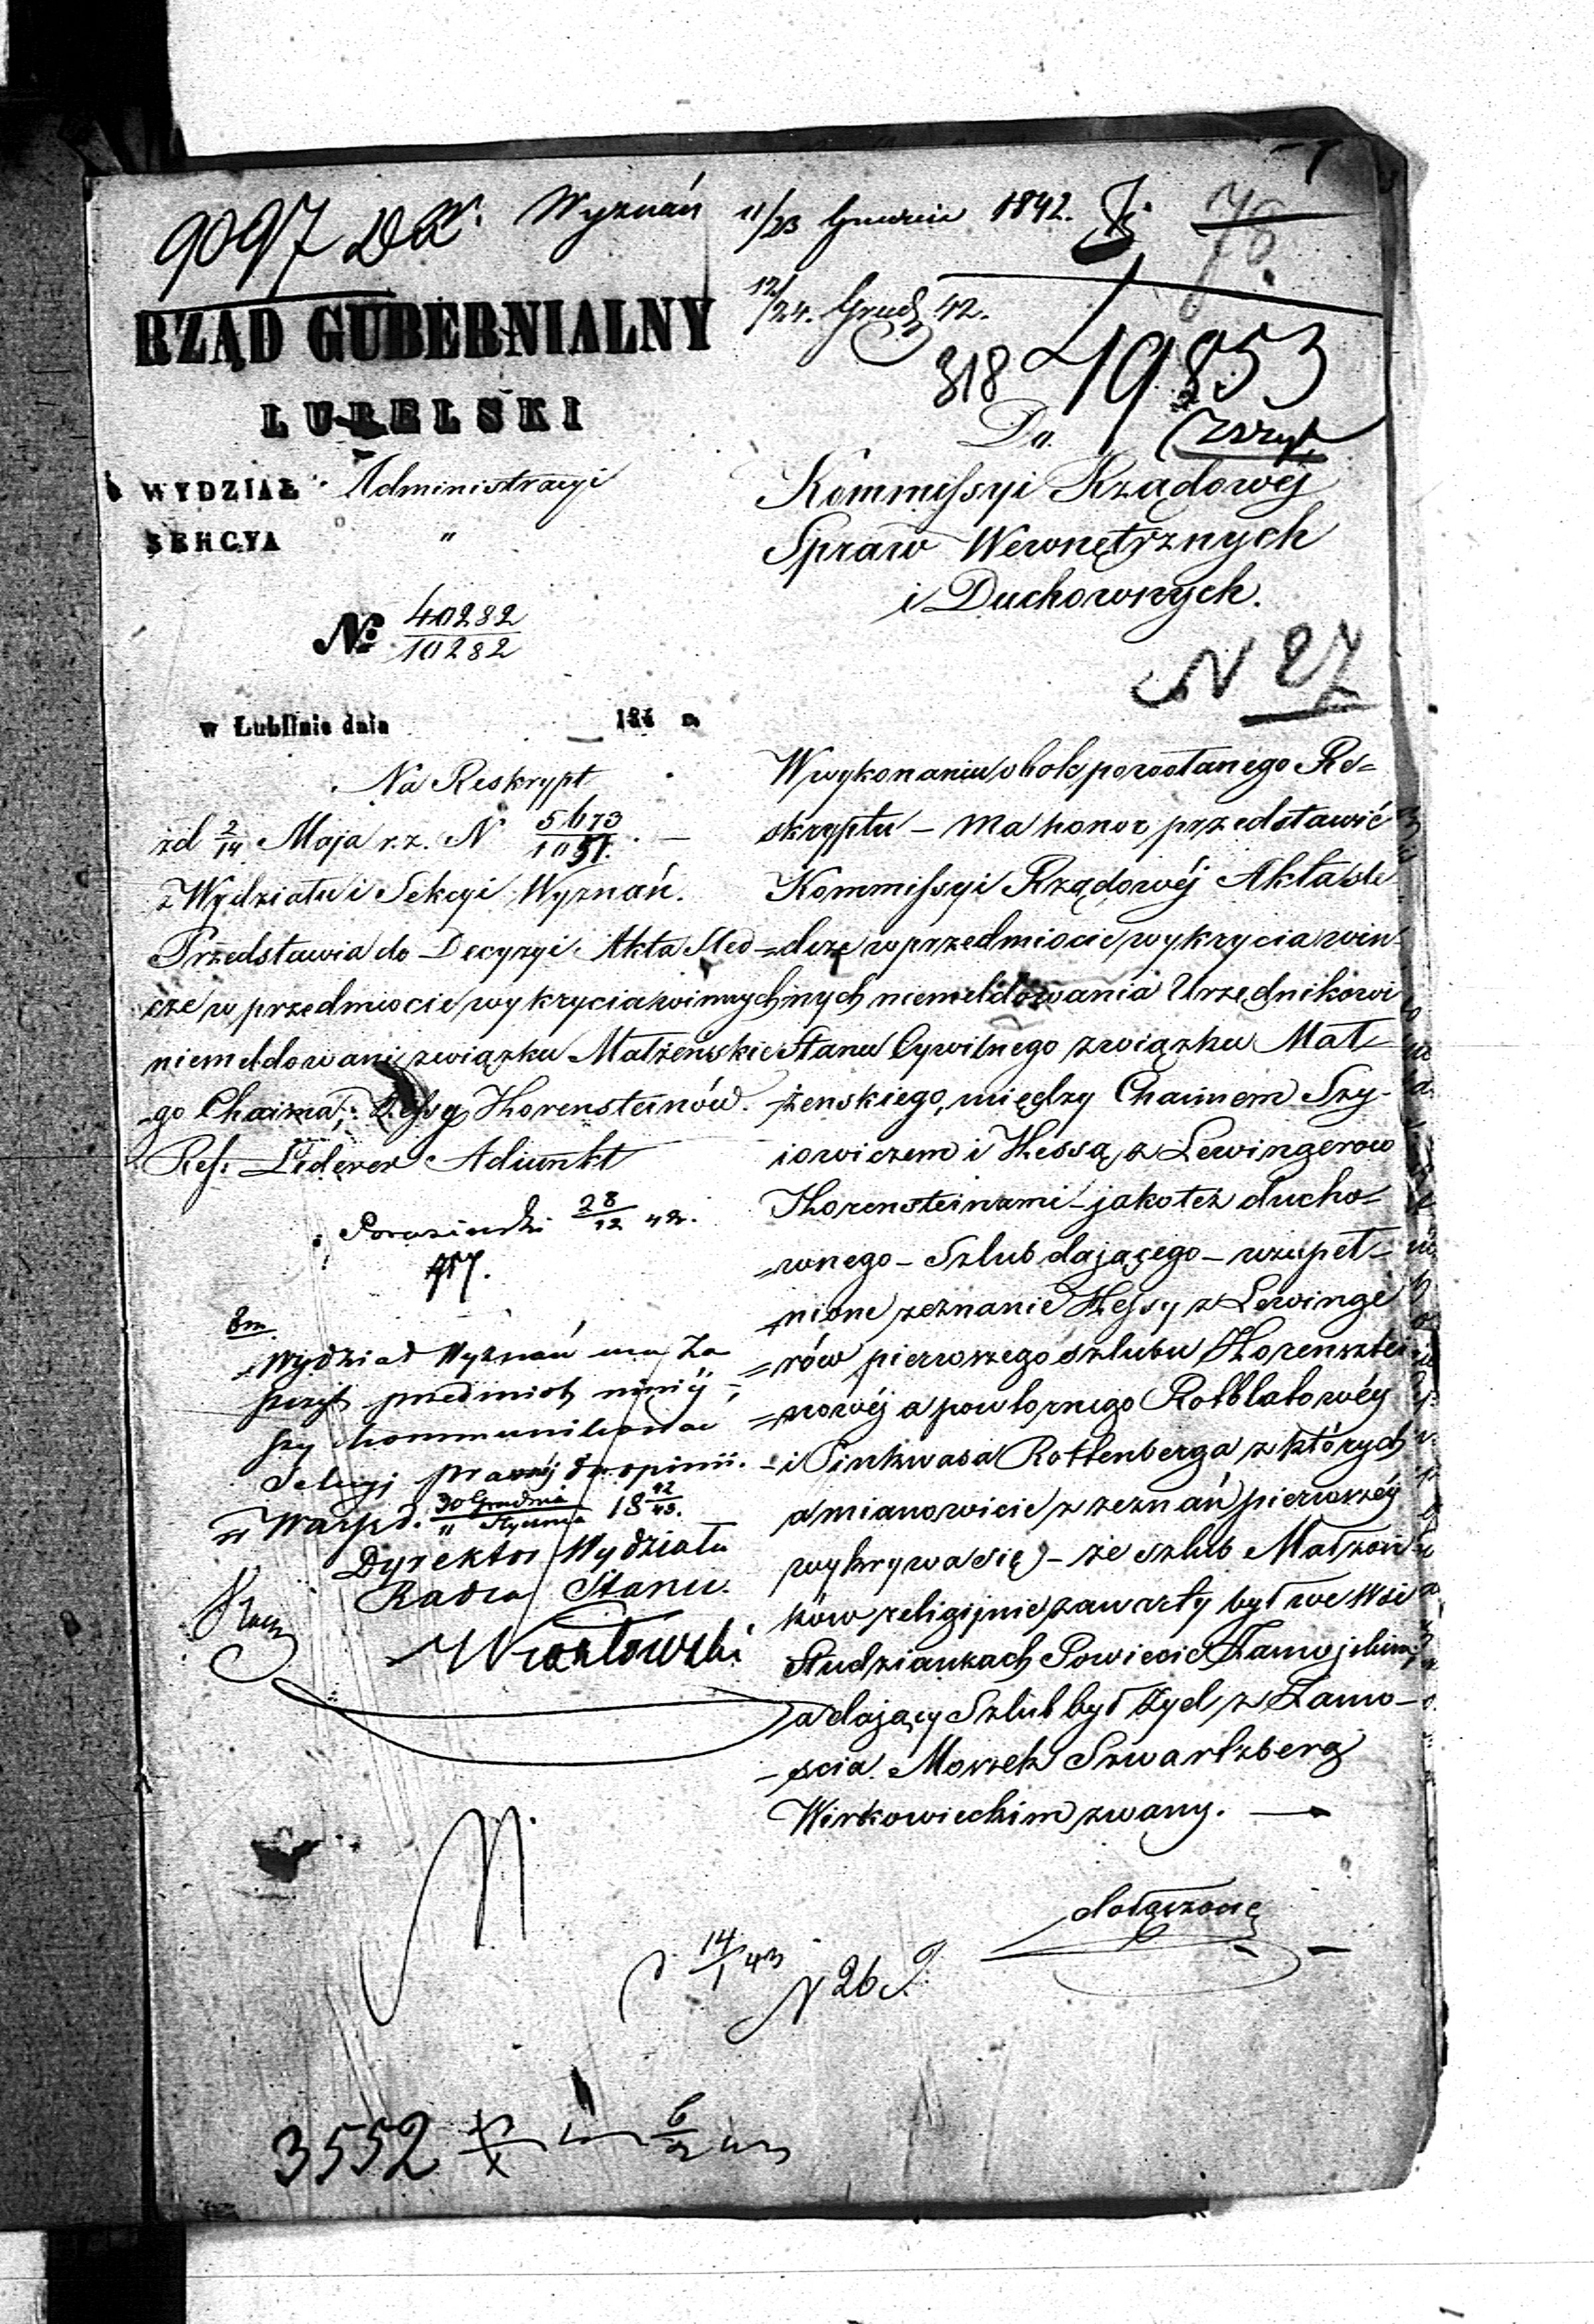 9097 Wyznań 11/23 Grudnia 1842.
76
12/24. Grud. 42.
RZĄD GUBERNIALNY
LUBELSKI
318 19853
Do
WYDZIAŁ Administracyi
SEKCYA "
Kommissyi Rządowéj
Spraw Wewnętrznych
i Duchownych.
№ 40282
10282
N 27
w Lublinie dnia 184 r.
Na Reskrypt
zd 2/14 Maja r.z. N 5673/1051. —
z Wydziału i Sekcyi Wyznań.
Przedstawia do Decyzyi Akta Sled=
cze w przedmiocie wykrycia winnych
niemeldowania związku Małżeńskie
-go Chaima, i Hessy Horensteinów.
Ref. Lederer Adiunkt
28/12 42.
Wydział Wyznań ma za
szczyt przedmiot niniéj=
szy kommunikować
Sekcyi prawnéj do opinii.
w Warsz. d. 30 Grudnia / 11 Stycznia 18 42/43.
Dyrektor Wydziału
Radca Stanu.
W wykonaniu obok powołanego Re=
skryptu – ma honor przedstawić
Kommissyi Rządowéj Akta śle
=dcze w przedmiocie wykrycia win-
nych niemeldowania Urzędnikowi
Stanu Cywilnego związku Mał-
żenskiego, między Chaimem Szy-
iowiczem i Hessą z Lewingerow
Horensteinami – jakoteż ducho=
=wnego – Szlub dającego – uzupeł-
nione zeznanie Hessy z Lewinge
=rów pierwszego szlubu Horensztei
=nowéj a powtornego Rotblatowéy
- i Pinkwasa Rottenberga z których
a mianowicie z zeznań pierwszéy
wykrywa się – że szlub Małżon
ków religijnie zawarty był we Wsi
Studziankach Powiecie Zamojskim,
a dający Szlub był Żyd z Zamo-
-scia Moszek Szwartzberg
Wirkowiechim zwany. —
dołączone
14/1 43
N 26
3552